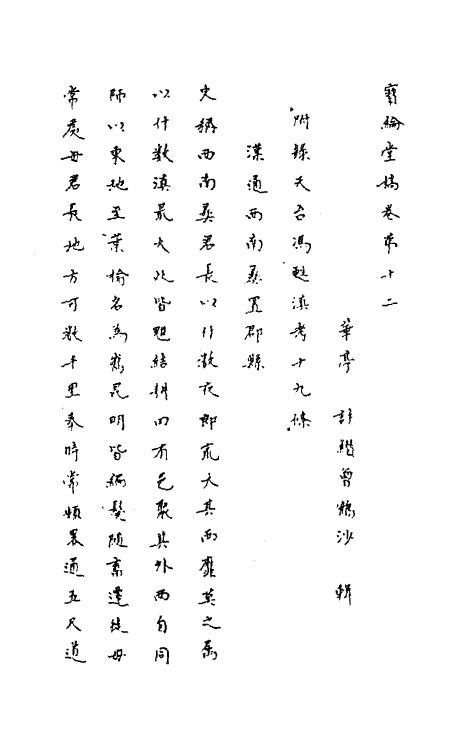 寶綸堂稿卷第十二
華亭 許纘曾鶴沙 輯
附錄天台馮甦滇考十九條
漢通西南彝置郡縣
史稱西南彝君長以什數夜郎冣大其西靡莫之屬
以什數滇冣大此皆魋結耕田有邑聚其外西自同
師以東北至葉榆名為嶲昆明皆編髮隨畜遷徙毋
常處毋君長地方可數千里秦時常頞畧通五尺道